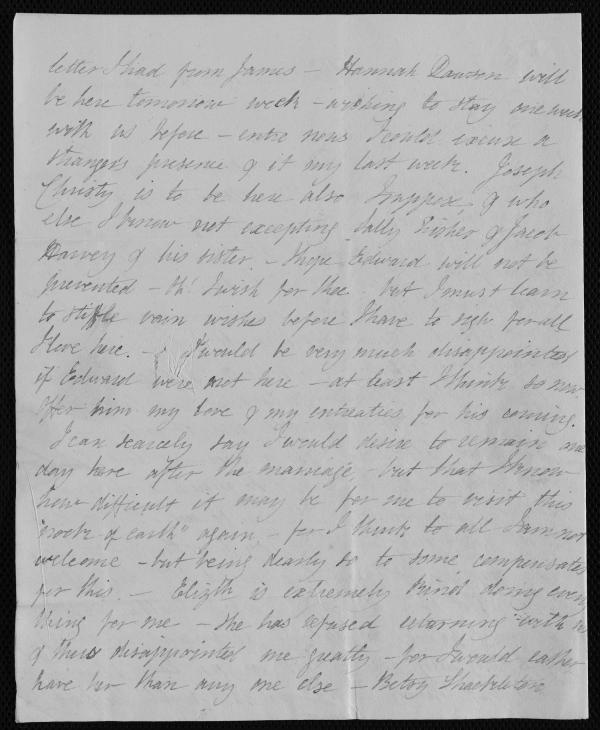 letter I had from James - Hannah Dawson will
be here tomorrow week - wishing to stay one week
with us before - entre nous I could excuse a
strangers presence & it my last week. Joseph
Christy is to be here also I suppose & who
else I know not excepting Sally Fisher & Jacob
Harvey & his sister - I hope Edward will not be
prevented - Oh! I wish for thee. but I must learn
to stifle vain wishes before I have to sigh for all
I love here. - I would be very much disappointed
if Edward were not here - at least I think so now
Offer him my love & my entreaties for his coming.
I can scarcely say I would desire to remain one
day here after the marriage, - but that I know
how difficult it may be for me to visit this
"nook of earth" again, - for I think to all I am not
welcome - but being dearly so to some compensates
for this. - Elizth is extremely kind doing every
thing for me - She has refused returning with me
& thus disappointed me greatly - for I would rather
have her than any one else - Betsy Shackleton